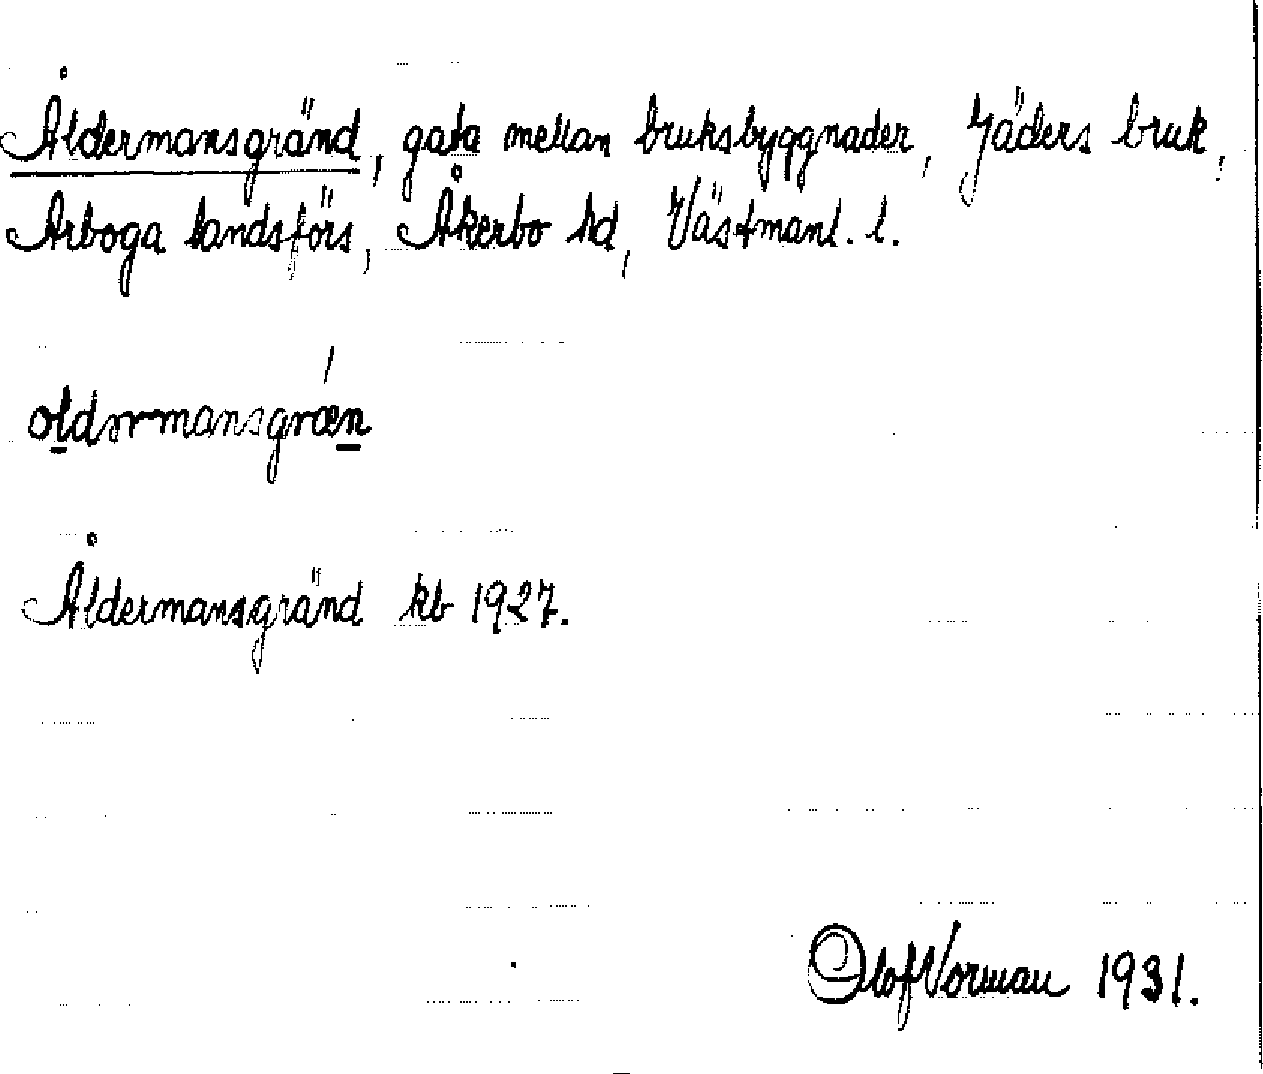 Åldermansgränd, gata mellan bruksbyggnader, Jäders bruk,
Arboga landsförs, Åkerbo hd, Västmanl. l.
Åldermansgränd kb 1927.
Olof Norman 1931.